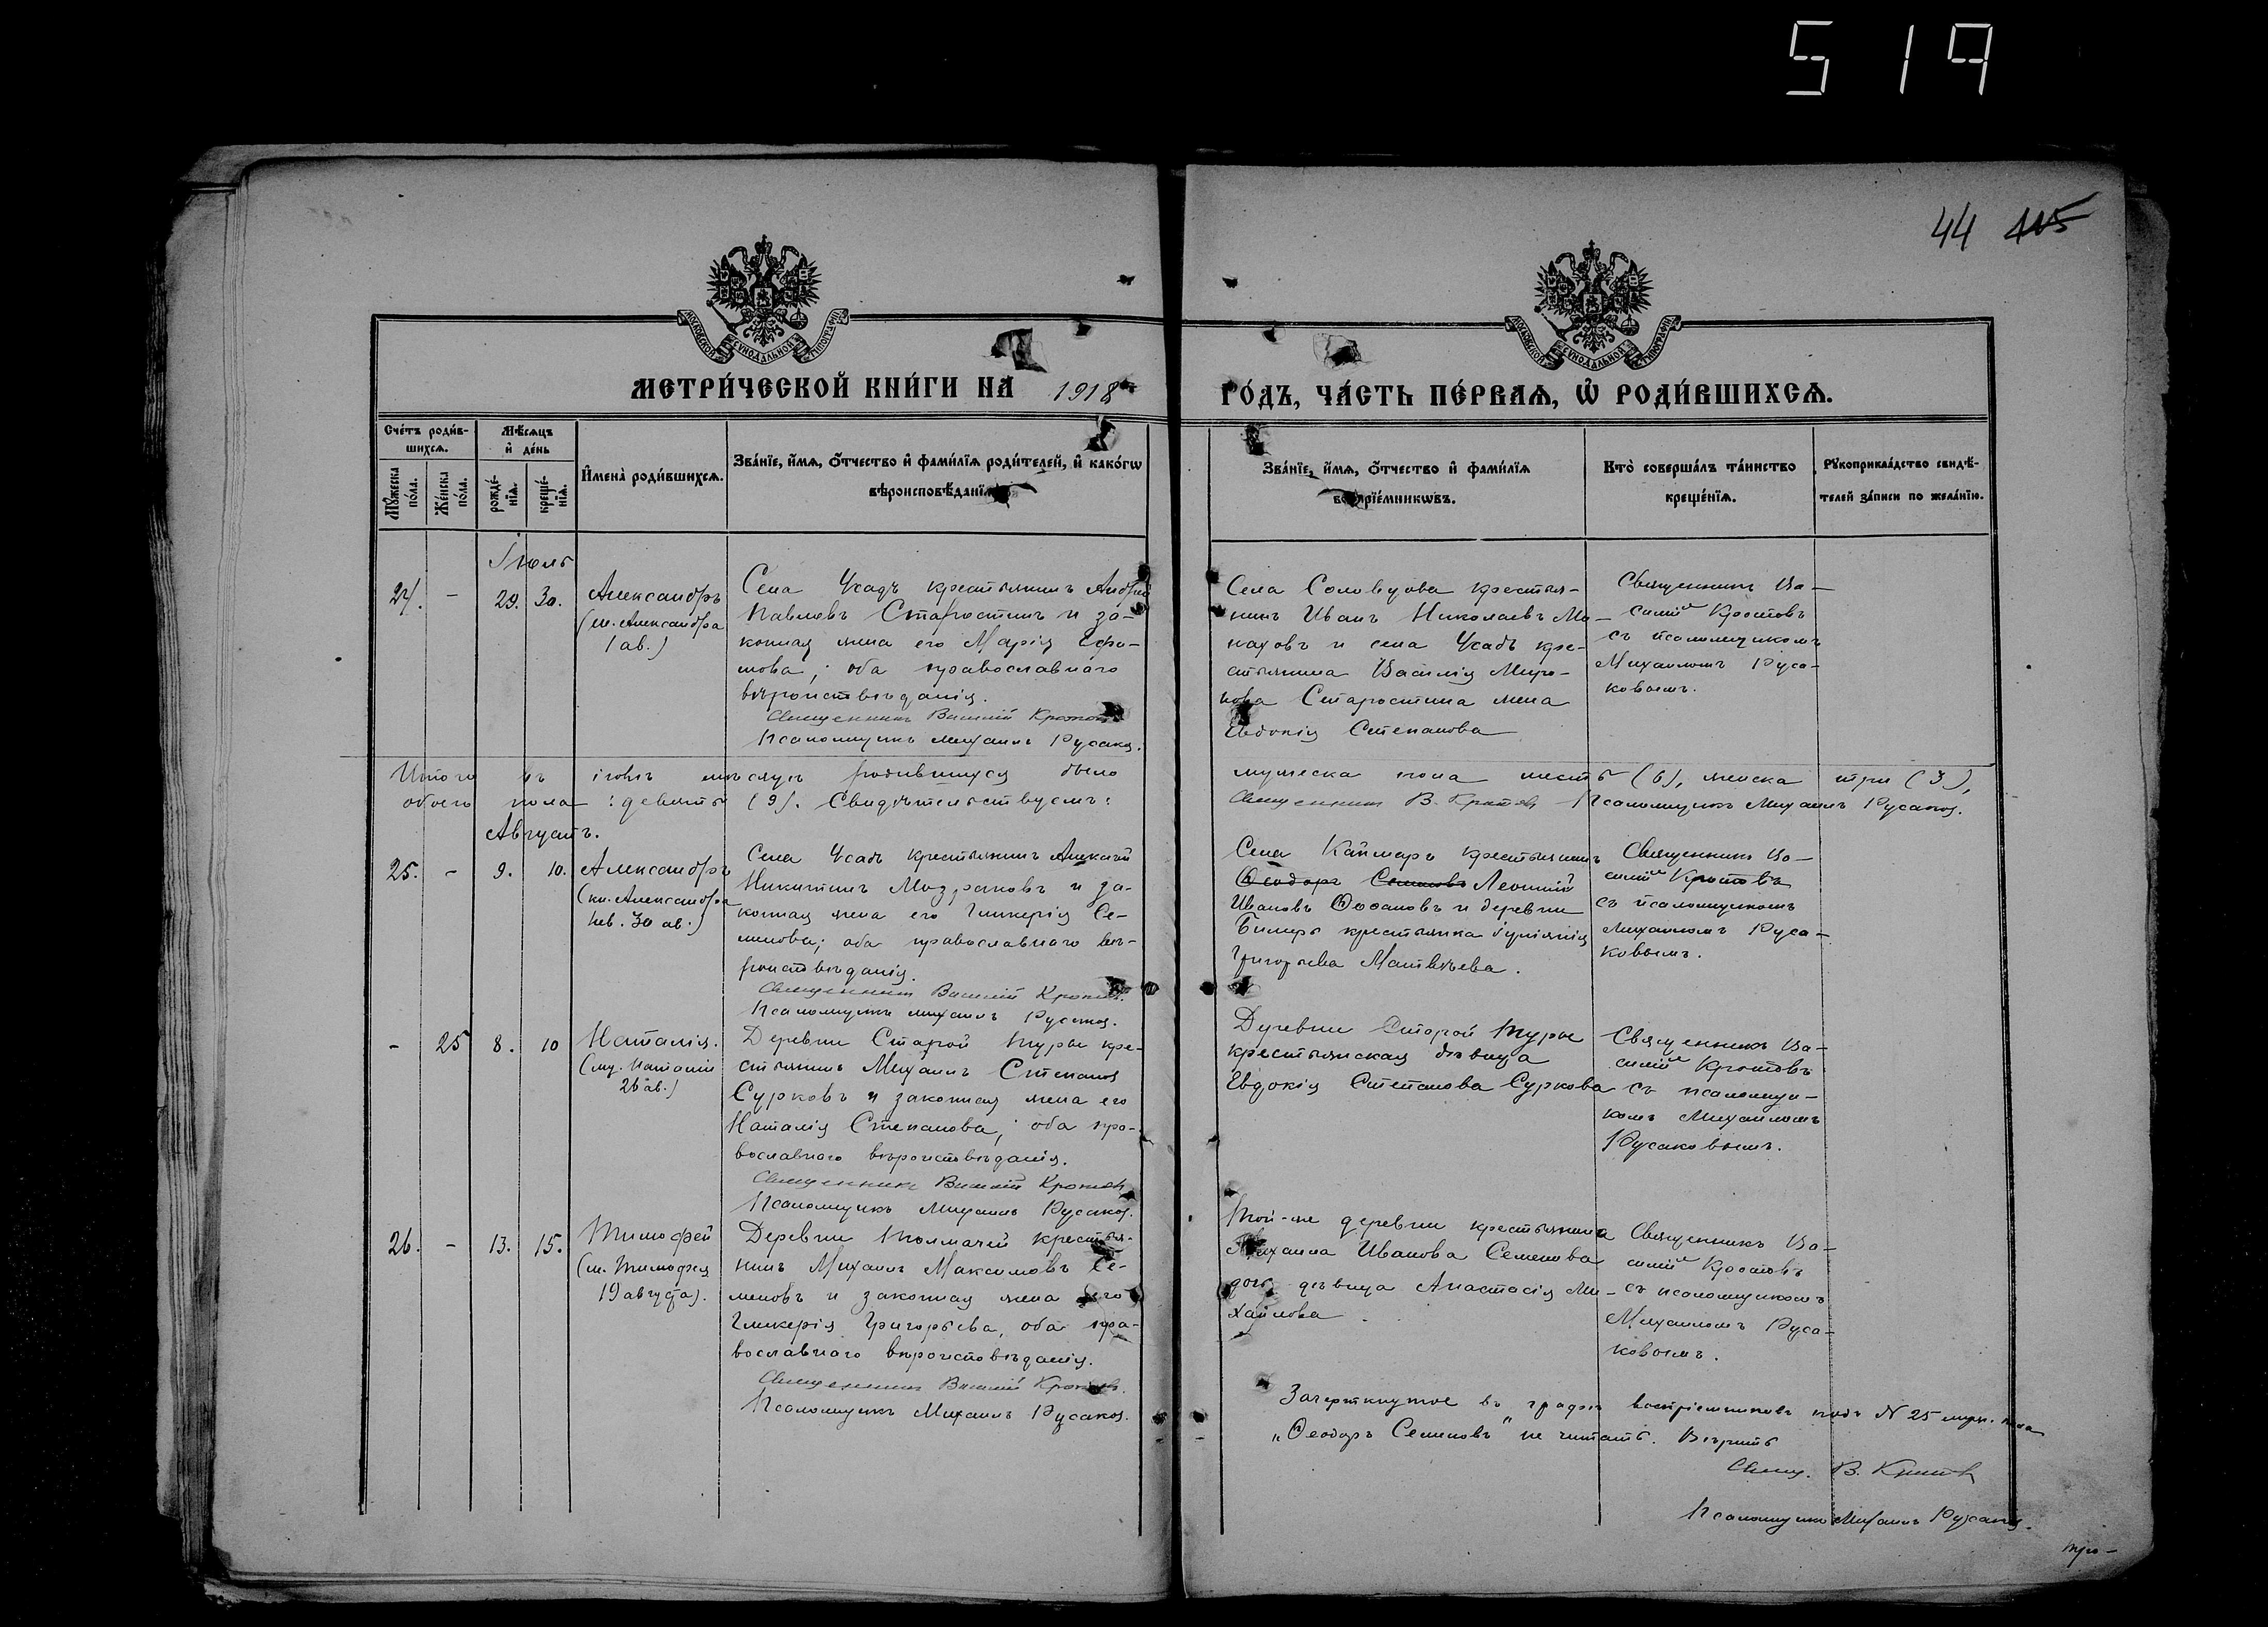 519
44 415
МОСКОВСКОЙ СѴНОДАЛЬНОЙ ТИПОГРАФІИ
МОСКОВСКОЙ СѴНОДАЛЬНОЙ ТИПОГРАФІИ
МЕТРИ́ЧЕСКОЙ КНИ́ГИ НА 1918
ГО́ДЪ, ЧА́СТЬ ПЕ́РВАѦ, Ѡ҆ РОДИ́ВШИХСѦ.
Сче́тъ роди́в-
шихсѧ.
Мꙋ́жеска по́ла.
Же́нска по́ла.
Мѣ́сѧцъ
и҆ де́нь
рожде́-
нїѧ.
креще́-
нїѧ.
И҆мена̀ роди́вшихсѧ.
Зва́нїе, и҆́мѧ, ѻ҆́тчество и҆ фами́лїѧ роди́телей, и҆ како́гѡ
вѣроисповѣ́данїѧ
Зва́нїе, и҆́мѧ, ѻ҆́тчество и҆ фами́лїѧ
воспрїе́мникѡвъ.
Кто̀ соверша́лъ та́инство
креще́нїѧ.
Рꙋкоприкла́дство свидѣ́-
телей за́писи по жела́нїю.
Іюль
24. - 29. 30.
Александръ
(м. Александра
1 ав.)
Села Усадъ крестьянинъ Андрей
Павловъ Старостинъ и за-
конная жена его Марія Ефи-
мова; оба православнаго
вѣроисповѣданія.
Священникъ Василій Кротовъ
Псаломщикъ Михаилъ Русаков.
Села Соловцова крестья-
нинъ Иванъ Николаевъ Мо-
наховъ и села Усадъ кре-
стьянина Василія Миро-
нова Старостина жена
Евдокія Степанова
Священникъ Ва-
силій Кротовъ
съ псаломщикомъ
Михаиломъ Руса-
ковымъ.
Итого въ іюлѣ мѣсяцѣ родившихся было
мужеска пола шесть (6), женска три (3),
обоего пола: девять (9). Свидѣтельствуемъ:
Священникъ В. Кротовъ Псаломщикъ Михаилъ Русаков.
Августъ.
25. - 9. 10.
Александръ
(кн. Александра
Нев. 30 ав.)
Села Усадъ крестьянинъ Алексій
Никитинъ Модраковъ и за-
конная жена его Гликерія Се-
менова; оба православнаго вѣ-
роисповѣданія.
Священникъ Василій Кротовъ.
Псаломщикъ Михаилъ Русаков.
Села Каймаръ крестьянинъ
Ѳеодоръ Семеновъ Леонтій
Ивановъ и деревни
крестьянка
Григорьева Матвѣева.
Священникъ Ва-
силій Кротовъ
съ псаломщикомъ
Михаиломъ Руса-
ковымъ.
- 25 8. 10
Наталія.
(му. Наталіи
26 ав.)
Деревни Старой Туры кре-
стьянинъ Михаилъ Степанов
Сурковъ и законная жена его
Наталія Степанова; оба пра-
вославнаго вѣроисповѣданія.
Священникъ Василій Кротовъ
Псаломщикъ Михаилъ Русаков.
Деревни Старой Туры
крестьянская дѣвица
Евдокія Степанова Суркова
Священникъ Ва-
силій Кротовъ
съ псаломщи-
комъ Михаиломъ
Русаковымъ.
26. - 13. 15.
Тимофей
(м. Тимофея
19 августа).
Деревни Толмачей крестья-
нинъ Михаилъ Максимовъ Се-
меновъ и законная жена его
Гликерія Григорьева, оба пра-
вославнаго вѣроисповѣданія.
Священникъ Василій Кротовъ.
Псаломщикъ Михаилъ Русаков.
Той-же деревни крестьянина
Михаила Иванова Семенова
дочь дѣвица Анастасія Ми-
хайлова.
Священникъ Ва-
силій Кротовъ
съ псаломщикомъ
Михаиломъ Руса-
ковымъ.
Зачеркнутое въ графѣ воспріемниковъ подъ N 25 муж. пола
„Ѳеодоръ Семеновъ" не читать. Вѣрить
Свящ. В. Кротовъ
Псаломщикъ Михаилъ Русаков.